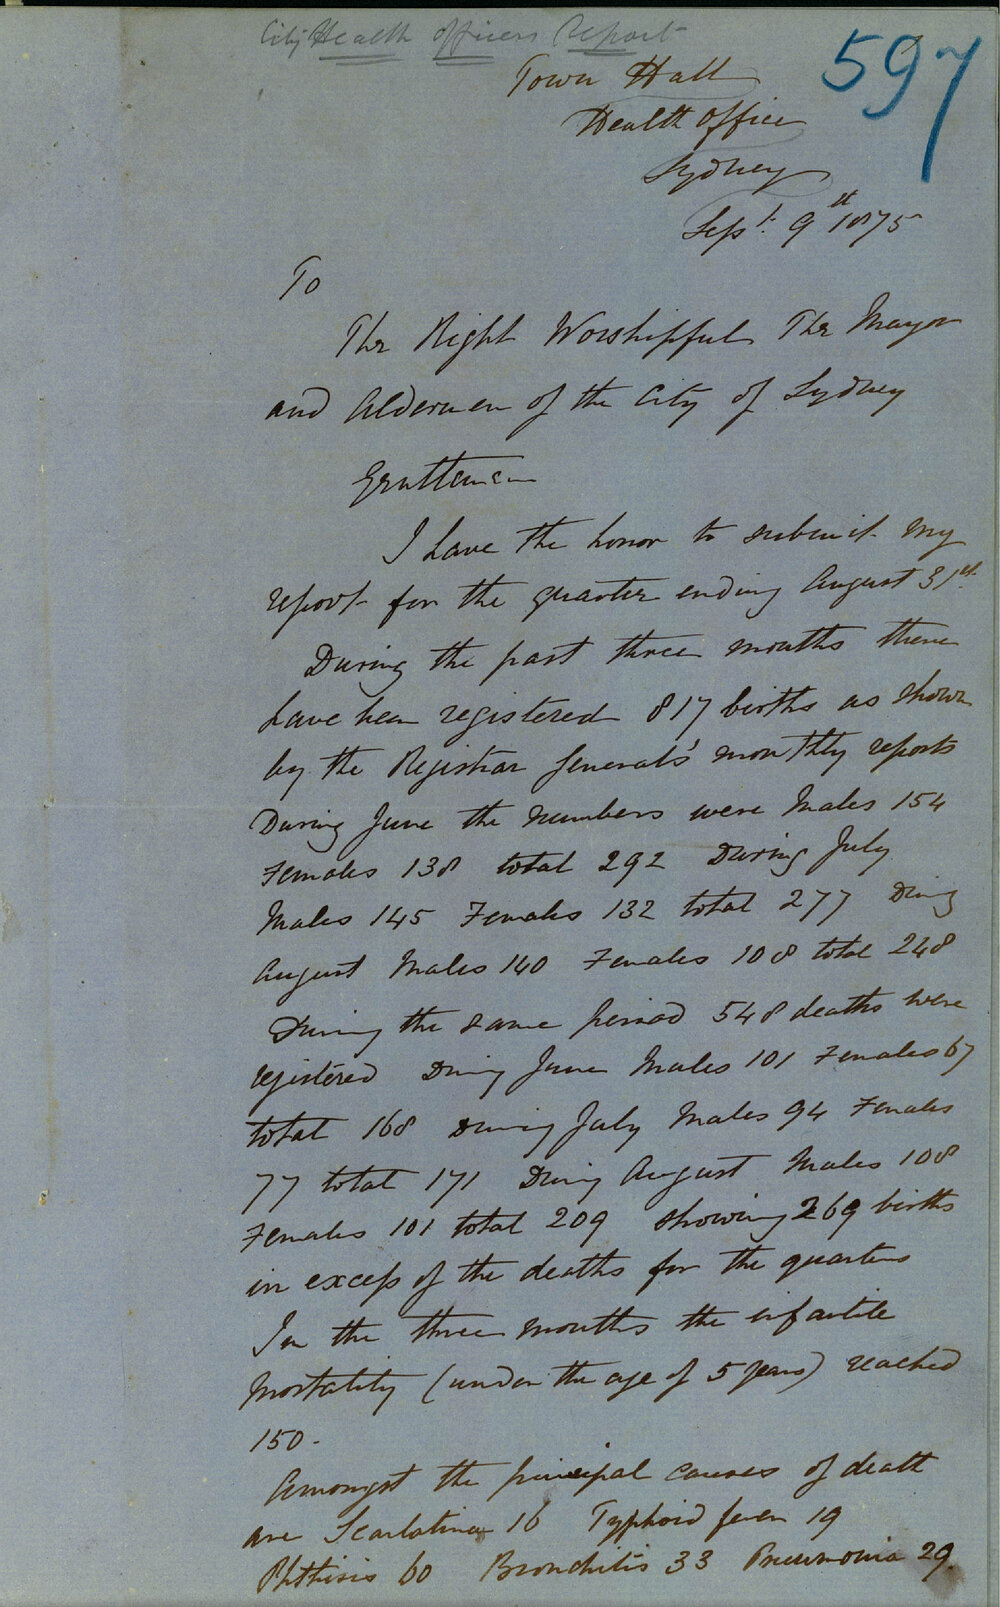 City Health Officers Report
597
Town Hall
Health Office
Sydney
Sept. 9th 1875
To
The Right Worshipful The Mayor
and Aldermen of the City of Sydney
Gentlemen
I have the honor to submit my
report for the quarter ending August 31st.
During the past three months there
have been registered 817 births as shown
by the Registrar General's monthly reports
During June the numbers were Males 154
Females 138 total 292 During July
Males 145 Females 132 total 277 During
August Males 140 Females 108 total 248
During the same period 548 deaths were
registered During June Males 101 Females 67
total 168 During July Males 94 Females
77 total 171 During August Males 108
Females 101 total 209 showing 269 births
in excess of the deaths for the quarter
In the three months the infantile
mortality (under the age of 5 years) reached
150.
Amongst the principal causes of death
are Scarlatina 16 Typhoid fever 19
Phthisis 60 Bronchitis 33 Pneumonia 29.